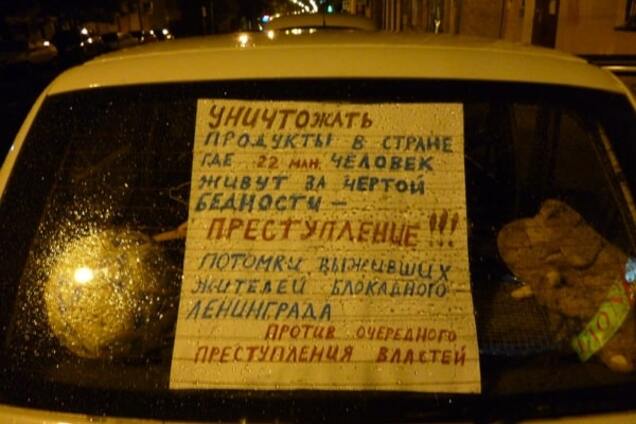 УНИЧТОЖАТЬ
ПРОДУКТЫ В СТРАНЕ
ГДЕ 22 МЛН. ЧЕЛОВЕК
ЖИВУТ ЗА ЧЕРТОЙ
БЕДНОСТИ —
ПРЕСТУПЛЕНИЕ!!!
ПОТОМКИ ВЫЖИВШИХ
ЖИТЕЛЕЙ БЛОКАДНОГО
ЛЕНИНГРАДА
ПРОТИВ ОЧЕРЕДНОГО
ПРЕСТУПЛЕНИЯ ВЛАСТЕЙ